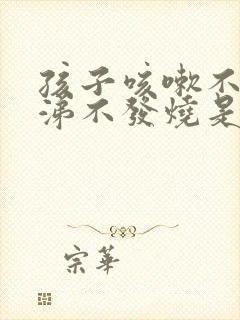 孩子咳嗽不
涕不發燒是
宗華